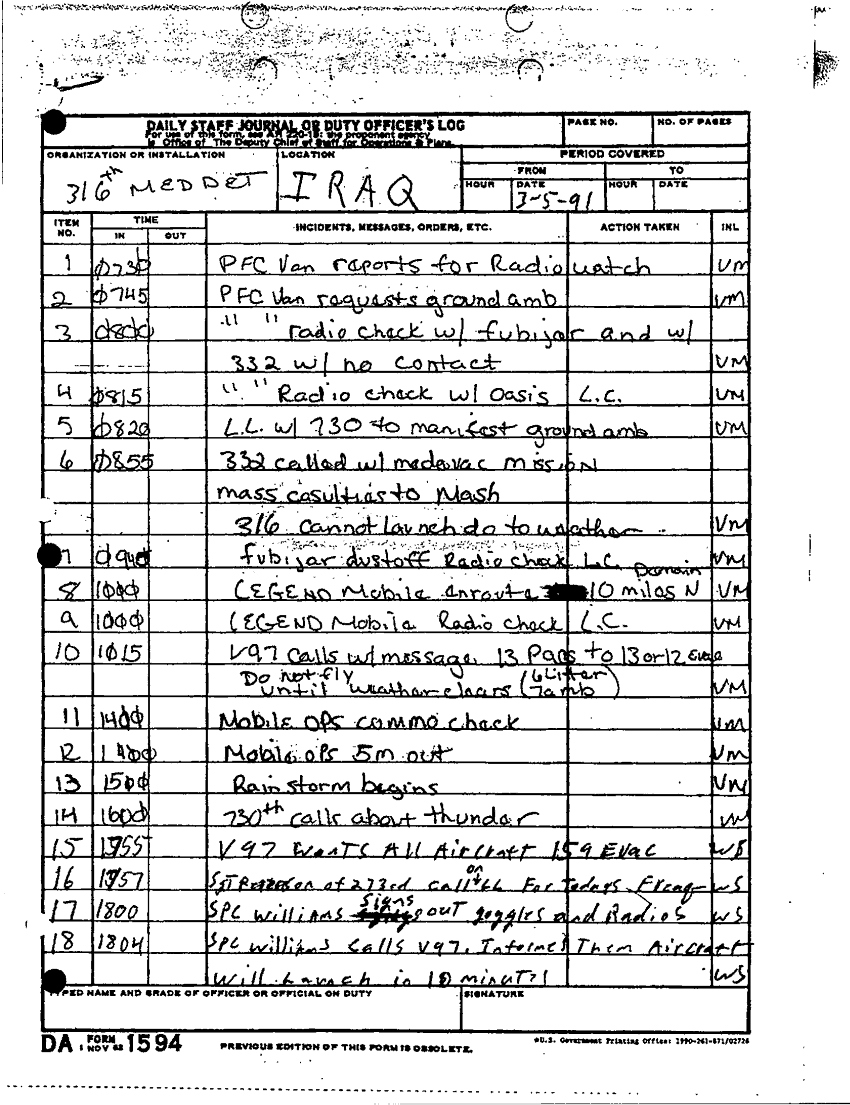 DAILY STAFF JOURNAL OR DUTY OFFICER'S LOG
For use of this form, see AR 220-15; the proponent agency
is Office of The Deputy Chief of Staff for Operations & Plans.
PAGE NO.
NO. OF PAGES
ORGANIZATION OR INSTALLATION
316th MEDDET
LOCATION
IRAQ
PERIOD COVERED
FROM
TO
HOUR
DATE
3-5-91
HOUR
DATE
ITEM NO.
TIME
IN
OUT
INCIDENTS, MESSAGES, ORDERS, ETC.
ACTION TAKEN
INL
1 0730 PFC Van reports for Radio watch VM
2 0745 PFC Van requests ground amb VM
3 0800 " " radio check w/ fubijar and w/
332 w/ no contact VM
4 0815 " " Radio check w/ Oasis L.C. VM
5 0820 L.L. w/ 730 to manifest ground amb VM
6 0855 332 called w/ medevac mission
mass casulties to Mash
316 cannot launch do to weather VM
7 0940 fubijar dustoff Radio check L.C. VM
8 1000 LEGEND Mobile enroute 10 miles N Domain VM
9 1000 LEGEND Mobile Radio check L.C. VM
10 1015 V97 calls w/ message 13 Pans to 13 or 12 Evac
Do not fly until weather clears (6 Litter 7 amb) VM
11 1400 Mobile OPS commo check VM
12 1400 Mobile ops 5m out VM
13 1500 Rain storm begins VM
14 1600 730th calls about thunder VM
15 1755 V97 Wants All Aircraft 159 Evac WS
16 1757 of 273rd call on For Todays Freq WS
17 1800 SPC Williams signs out goggles and Radios WS
18 1804 SPC Williams calls V97. Informes Them Aircraft
Will Launch in 10 minutes WS
TYPED NAME AND GRADE OF OFFICER OR OFFICIAL ON DUTY
SIGNATURE
DA FORM 1 NOV 62 1594
PREVIOUS EDITION OF THIS FORM IS OBSOLETE.
*U.S. Government Printing Office: 1990-261-871/02726